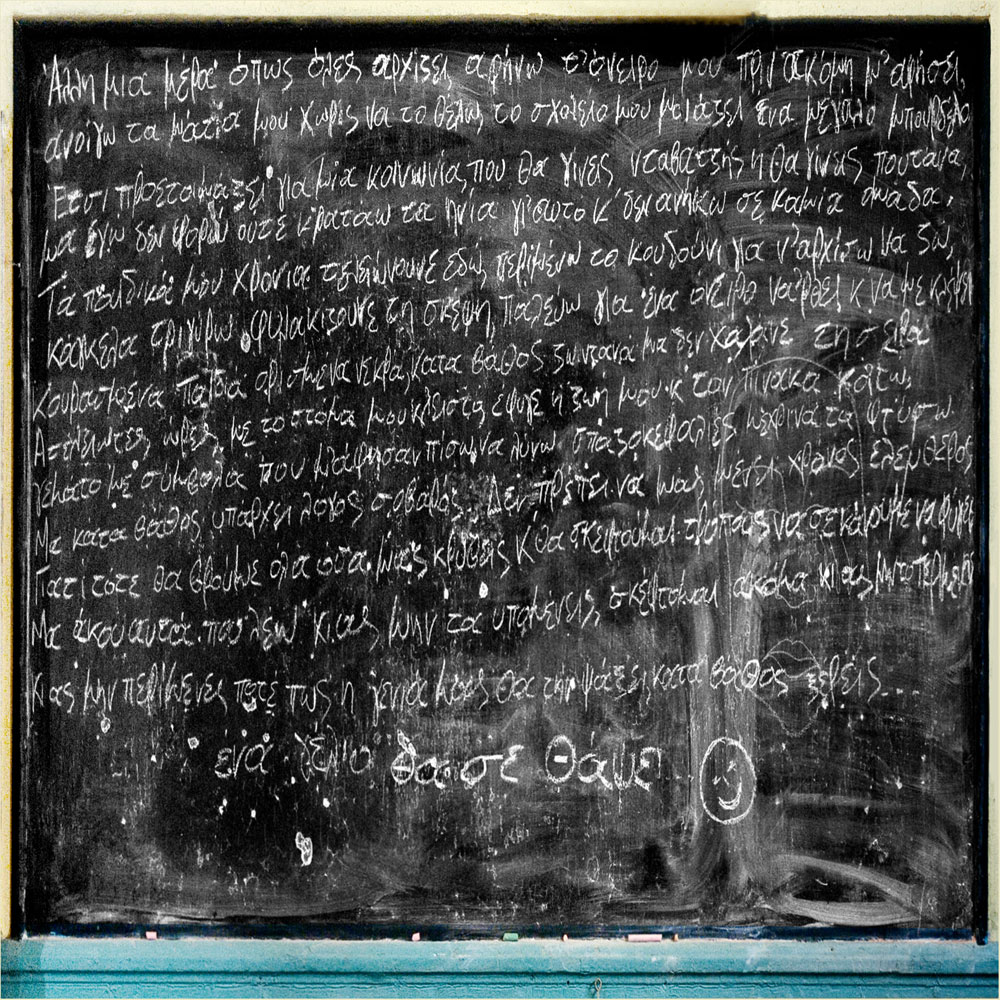 Άλλη μια μέρα όπως όλες αρχίζει, αφήνω τ' όνειρο μου πριν ακόμη μ' αφήσει,
ανοίγω τα μάτια μου χωρίς να το θέλω, το σχολείο μου μοιάζει ένα μεγάλο μπουρδέλο
Έτσι προετοιμάζει για μία κοινωνία, που θα γίνεις νταβατζής η θα γίνεις πουτανα,
μα εγω δεν φοράω ούτε κρατάω τα ηνία γι'αυτο κ' δεν ανήκω σε καμία ομάδα.
Τα παιδικά μου χρόνια τελειώνουνε εδώ, περιμένω το κουδούνι για ν'αρχίσω να ζω,
κάγκελα τριγύρω φυλακίζουνε τη σκέψη, παλεύω για ένα όνειρο να'ρθει κ να με κλέψει
Κουρασμένα παιδια αρισμένα νεκρά, κατα βάθος ζωντανά μα δεν χαλάνε τη σειρά
Ατελείωτες ώρες, με το στόμα μου κλειστό, έφυγε η ζωή μου κ' τον πίνακα κοιτώ,
γεμάτο με σύμβολα που μ'αφησαν πίσω, να λύνω σπαζοκεφαλιές μέχρι να τα φτύσω
Μα κατα βάθος υπάρχει λογος σοβαρός. Δεν πρέπει να μας μενει χρόνος ελεύθερος
Γιατί τότε θα βρούμε ολα οσα μας κρύβεις κ θα σκεφτούμε τρόπους να σε κάνουμε να φύγεις
Μα άκου αυτά που λέω κι ας μην τα υπομένεις, σκέφτομαι ακόμα κι ας μην το περιμένεις
κι ας μην περίμενες ποτε πως η γενιά μας θα την ψάξει, κατα βάθος ξέρεις...
ένα γέλιο θα σε θάψει